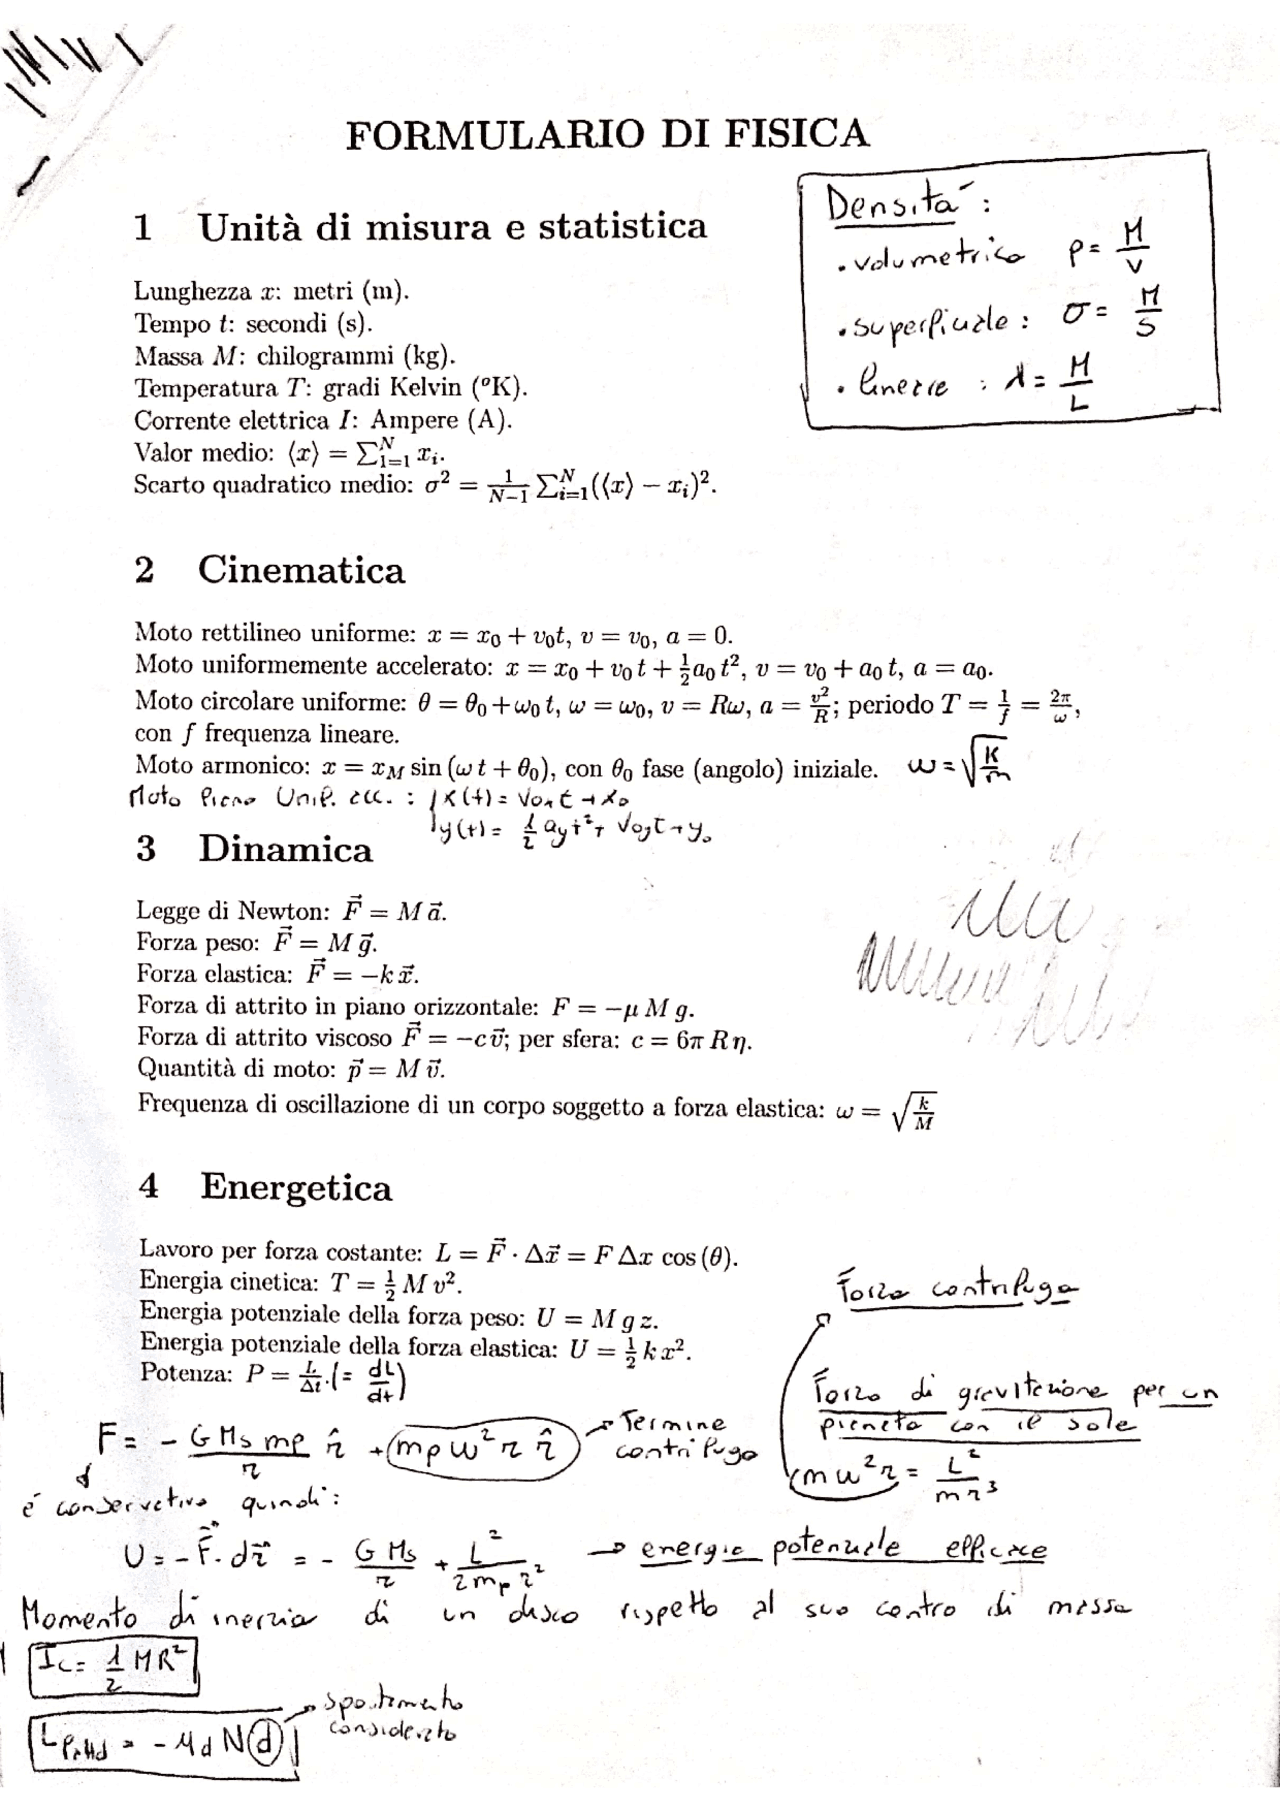 FORMULARIO DI FISICA
Densità:
· volumetrica ρ = M/V
· superficiale: σ = M/S
· lineare : λ = M/L
1 Unità di misura e statistica
Lunghezza x: metri (m).
Tempo t: secondi (s).
Massa M: chilogrammi (kg).
Temperatura T: gradi Kelvin (°K).
Corrente elettrica I: Ampere (A).
Valor medio: ⟨x⟩ = ∑_{1=1}^{N} x_i.
Scarto quadratico medio: σ² = 1/(N−1) ∑_{i=1}^{N} (⟨x⟩ − x_i)².
2 Cinematica
Moto rettilineo uniforme: x = x₀ + v₀t, v = v₀, a = 0.
Moto uniformemente accelerato: x = x₀ + v₀ t + ½ a₀ t², v = v₀ + a₀ t, a = a₀.
Moto circolare uniforme: θ = θ₀ + ω₀ t, ω = ω₀, v = Rω, a = v²/R; periodo T = 1/f = 2π/ω,
con f frequenza lineare.
Moto armonico: x = x_M sin (ω t + θ₀), con θ₀ fase (angolo) iniziale. ω = √(K/m)
Moto Piano Unif. acc. : x(t) = v₀ₓ t + x₀
y(t) = ½ a_y t² + v₀y t + y₀
3 Dinamica
Legge di Newton: F⃗ = M a⃗.
Forza peso: F⃗ = M g⃗.
Forza elastica: F⃗ = −k x⃗.
Forza di attrito in piano orizzontale: F = −μ M g.
Forza di attrito viscoso F⃗ = −c v⃗; per sfera: c = 6π R η.
Quantità di moto: p⃗ = M v⃗.
Frequenza di oscillazione di un corpo soggetto a forza elastica: ω = √(k/M)
4 Energetica
Lavoro per forza costante: L = F⃗ · Δx⃗ = F Δx cos (θ).
Energia cinetica: T = ½ M v².
Energia potenziale della forza peso: U = M g z.
Energia potenziale della forza elastica: U = ½ k x².
Potenza: P = L/Δt. (= dL/dt)
Forza centrifuga
Forza di gravitazione per un
pianeta con il sole
mω²r = L²/mr³
F = − G Ms mp/r r̂ + (mp ω² r r̂) → Termine
centrifugo
è conservativa quindi:
U = − F⃗ · dr⃗ = − G Ms/r + L²/2mp r² → energia potenziale efficace
Momento di inerzia di un disco rispetto al suo centro di massa
I_c = ½ MR²
L_Pattd = − μd N d → spostamento
considerato